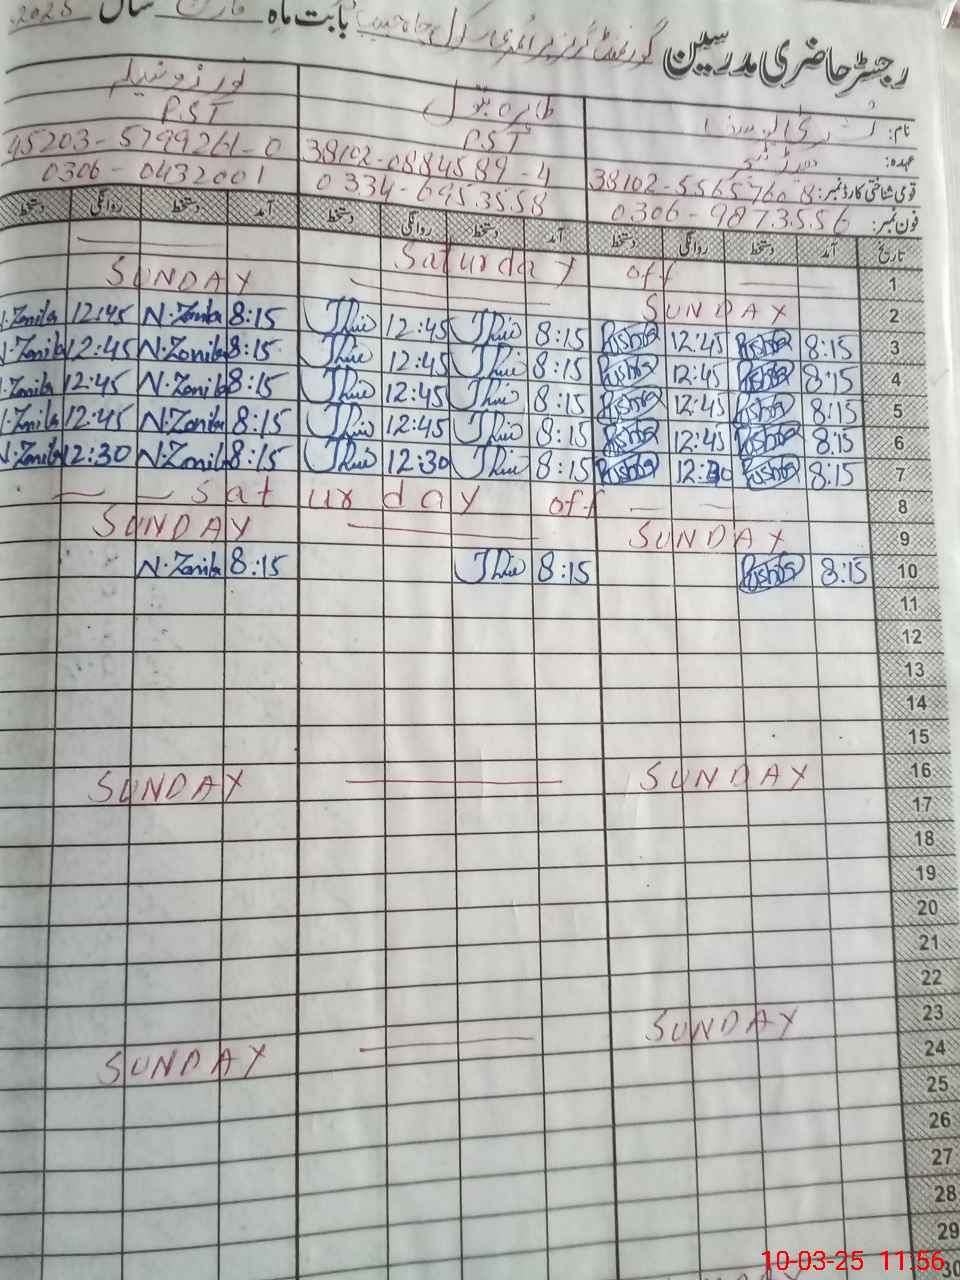 رجسٹر حاضری مدرسین گورنمنٹ گرلز پرائمری سکول بابت ماہ مارچ سال 2025
نام:
طاہرہ بتول
عہدہ:
PST
PST
قومی شناختی کارڈ نمبر: 38102-5565760-8
38102-0884589-4
45203-5799261-0
فون نمبر: 0306-9873556
0334-6953558
0306-0432001
تاریخ آمد دستخط روانگی دستخط آمد دستخط روانگی دستخط آمد دستخط روانگی دستخط
1 Saturday off
2 SUNDAY SUNDAY
3 8:15 Rushda 12:45 Rushda 8:15 12:45 8:15 N.Zonila 12:45 N.Zonila
4 8:15 Rushda 12:45 Rushda 8:15 12:45 8:15 N.Zonila 12:45 N.Zonila
5 8:15 Rushda 12:45 Rushda 8:15 12:45 8:15 N.Zonila 12:45 N.Zonila
6 8:15 Rushda 12:45 Rushda 8:15 12:45 8:15 N.Zonila 12:45 N.Zonila
7 8:15 Rushda 12:30 Rushda 8:15 12:30 8:15 N.Zonila 12:30 N.Zonila
8 Saturday off
9 SUNDAY SUNDAY
10 8:15 Rushda 8:15 8:15 N.Zonila
11
12
13
14
15
16 SUNDAY SUNDAY
17
18
19
20
21
22
23 SUNDAY SUNDAY
24
25
26
27
28
29
30
10-03-25 11:56